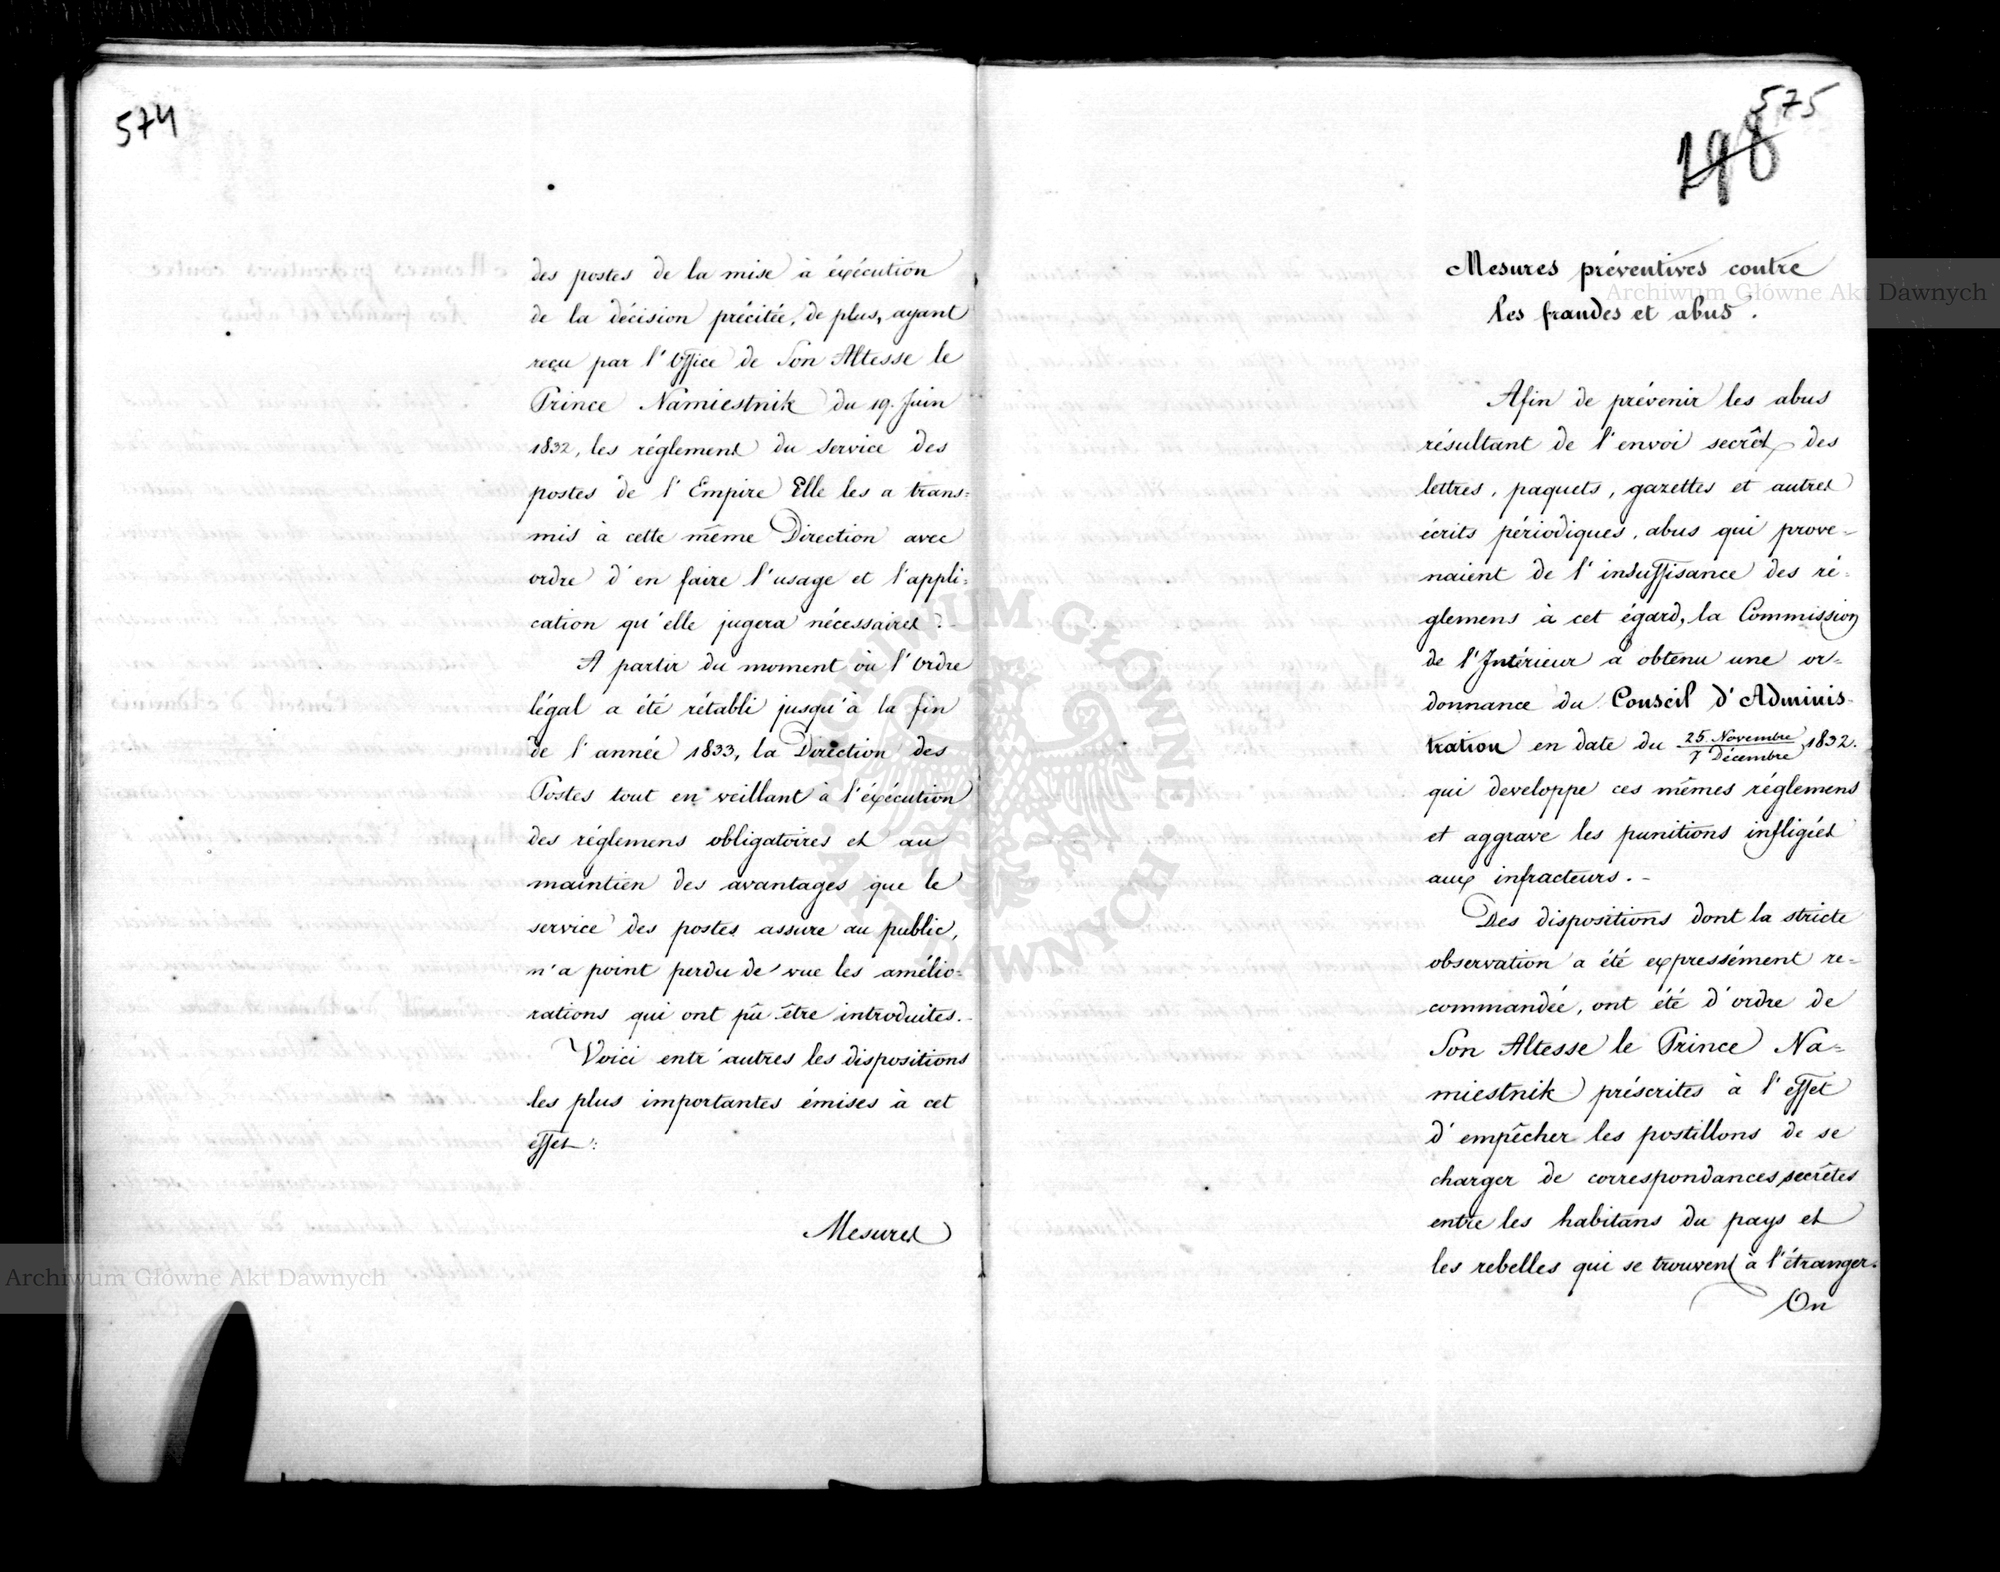 574
des postes de la mise à éxécution
de la décision précitée, de plus, ayant
reçu par l'Office de Son Altesse le
Prince Namiestnik du 19. Juin
1832, les réglemens du service des
postes de l'Empire Elle les a trans=
mis à cette même Direction avec
ordre d'en faire l'usage et l'appli=
cation qu'elle jugera nécessaires.-
A partir du moment où l'ordre
légal a été rétabli jusqu'à la fin
de l'année 1833, la Direction des
Postes tout en veillant à l'éxécution
des réglemens obligatoires et au
maintien des avantages que le
service des postes assure au public,
n'a point perdu de vue les amélio=
rations qui ont pû être introduites.-
Voici entr'autres les dispositions
les plus importantes émises à cet
effet:
Mesures
575
198
Mesures préventives contre
les fraudes et abus.
Afin de prévenir les abus
résultant de l'envoi secrêt des
lettres, paquets, gazettes et autres
écrits périodiques, abus qui prove-
naient de l'insuffisance des ré-
glemens à cet égard, la Commission
de l'Intérieur a obtenu une or=
donnance du Conseil d'Adminis-
tration en date du 25 Novembre/7 Décembre 1832.
qui developpe ces mêmes réglemens
et aggrave les punitions infligées
aux infracteurs.-
Des dispositions dont la stricte
observation a été expressément re=
commandée, ont été d'ordre de
Son Altesse le Prince Na=
miestnik préscrites à l'effet
d'empêcher les postillons de se
charger de correspondances secrêtes
entre les habitans du pays et
les rebelles qui se trouvent à l'étranger.
On
Archiwum Główne Akt Dawnych
Archiwum Główne Akt Dawnych
ARCHIWUM GŁÓWNE AKT DAWNYCH